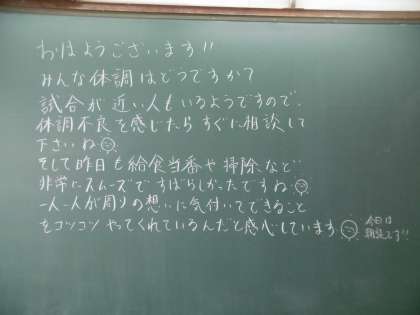 おはようございます!!
みんな体調はどうですか?
試合が近い人もいるようですので、
体調不良を感じたらすぐに相談して
下さいね
そして昨日も給食当番や掃除など
非常にスムーズですばらしかったですね
一人一人が周りの想いに気付いてできること
をコツコツやってくれているんだと感心しています
今日は
朝読です!!